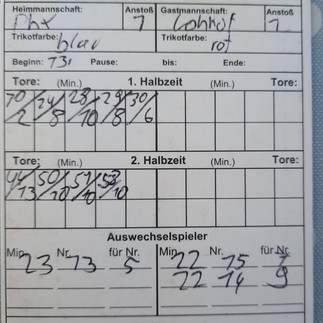 Heimmannschaft: Anstoß Gastmannschaft: Anstoß
Phx 1 Lohhof 1
Trikotfarbe: blau Trikotfarbe: rot
Beginn: 13 Pause: bis: Ende:
Tore: (Min.) 1. Halbzeit (Min.) Tore:
10/2 24/8 28/10 29/8 30/6
Tore: (Min.) 2. Halbzeit (Min.) Tore:
44/13 50/10 51/10 53/10
Auswechselspieler
Min. Nr. für Nr. Min. Nr. für Nr.
23 13 5 22 15 7
22 14 9